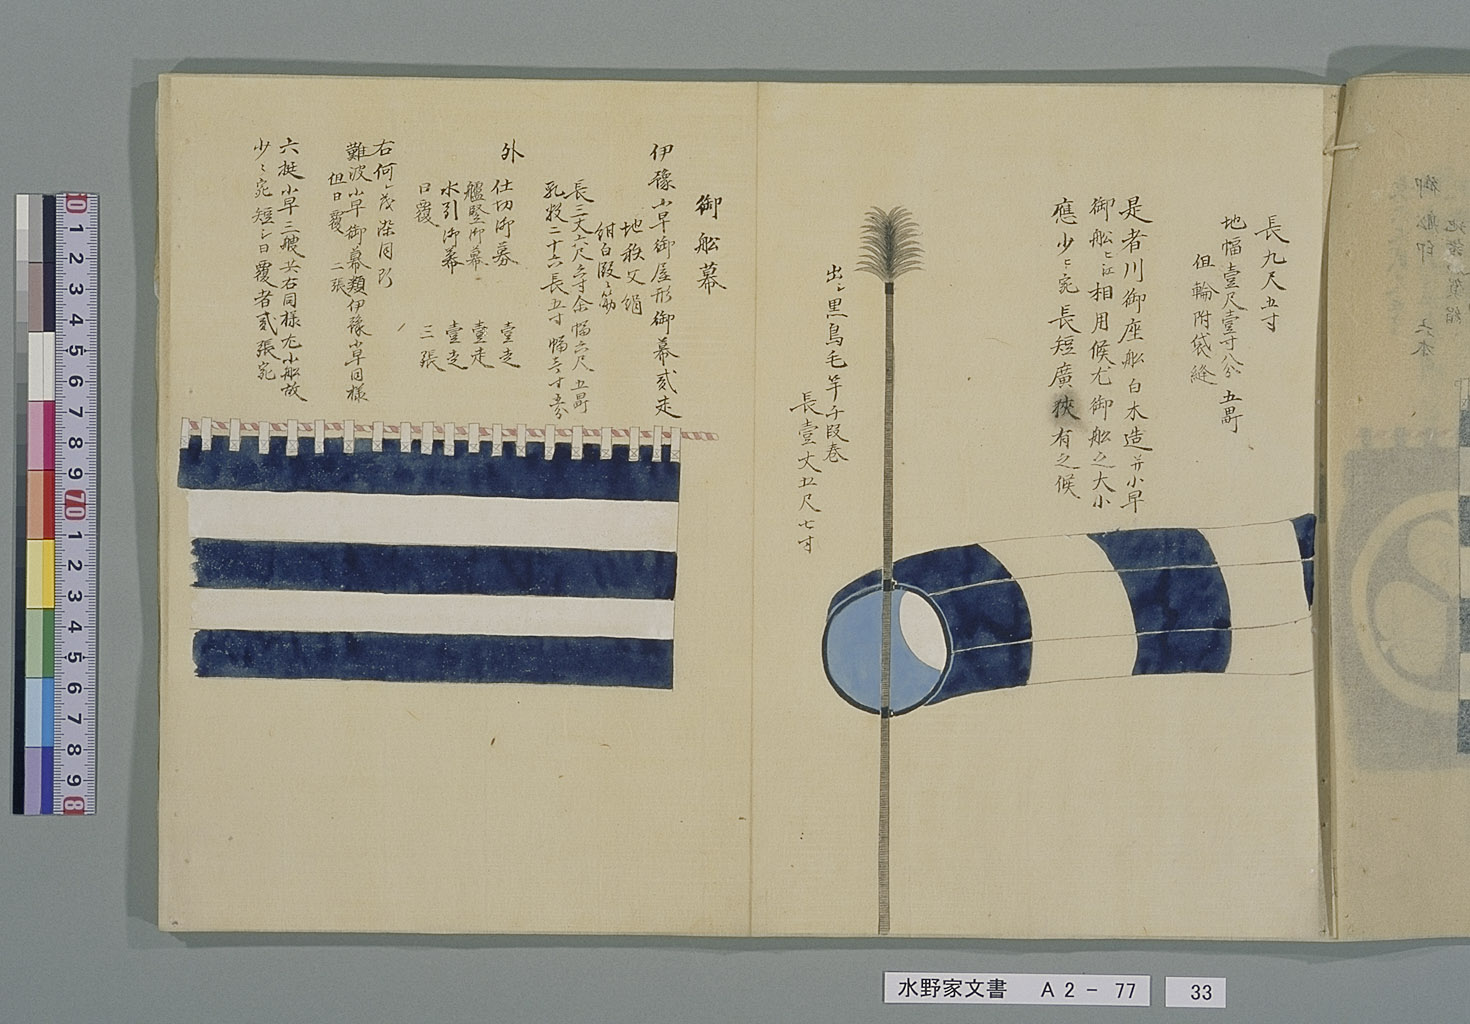 長九尺五寸
地幅壹尺壹寸八分 五幅
但輪附袋縫
是者川御座船白木造并小早
御船ニ江相用候尤御船之大小
應少々宛長短廣狹有之候
出シ黒鳥毛竿千段巻
長壹丈五尺七寸
御船幕
伊豫小早御屋形御幕貳走
地秩父絹
紺白段々筋
長三丈六尺 寸余幅六尺 五幅
乳数二十六長五寸幅 寸 分
外
仕切御幕 壹走
艫竪御幕 壹走
水引御幕 壹走
日覆 三張
右何レ茂染同断
難波小早御幕類伊豫小早同様
但日覆 二張
六挺小早三艘共右同様尤小船故
少々宛短シ日覆者貳張宛
水野家文書 A2-77
33
0 1 2 3 4 5 6 7 8 9 70 1 2 3 4 5 6 7 8 9 8